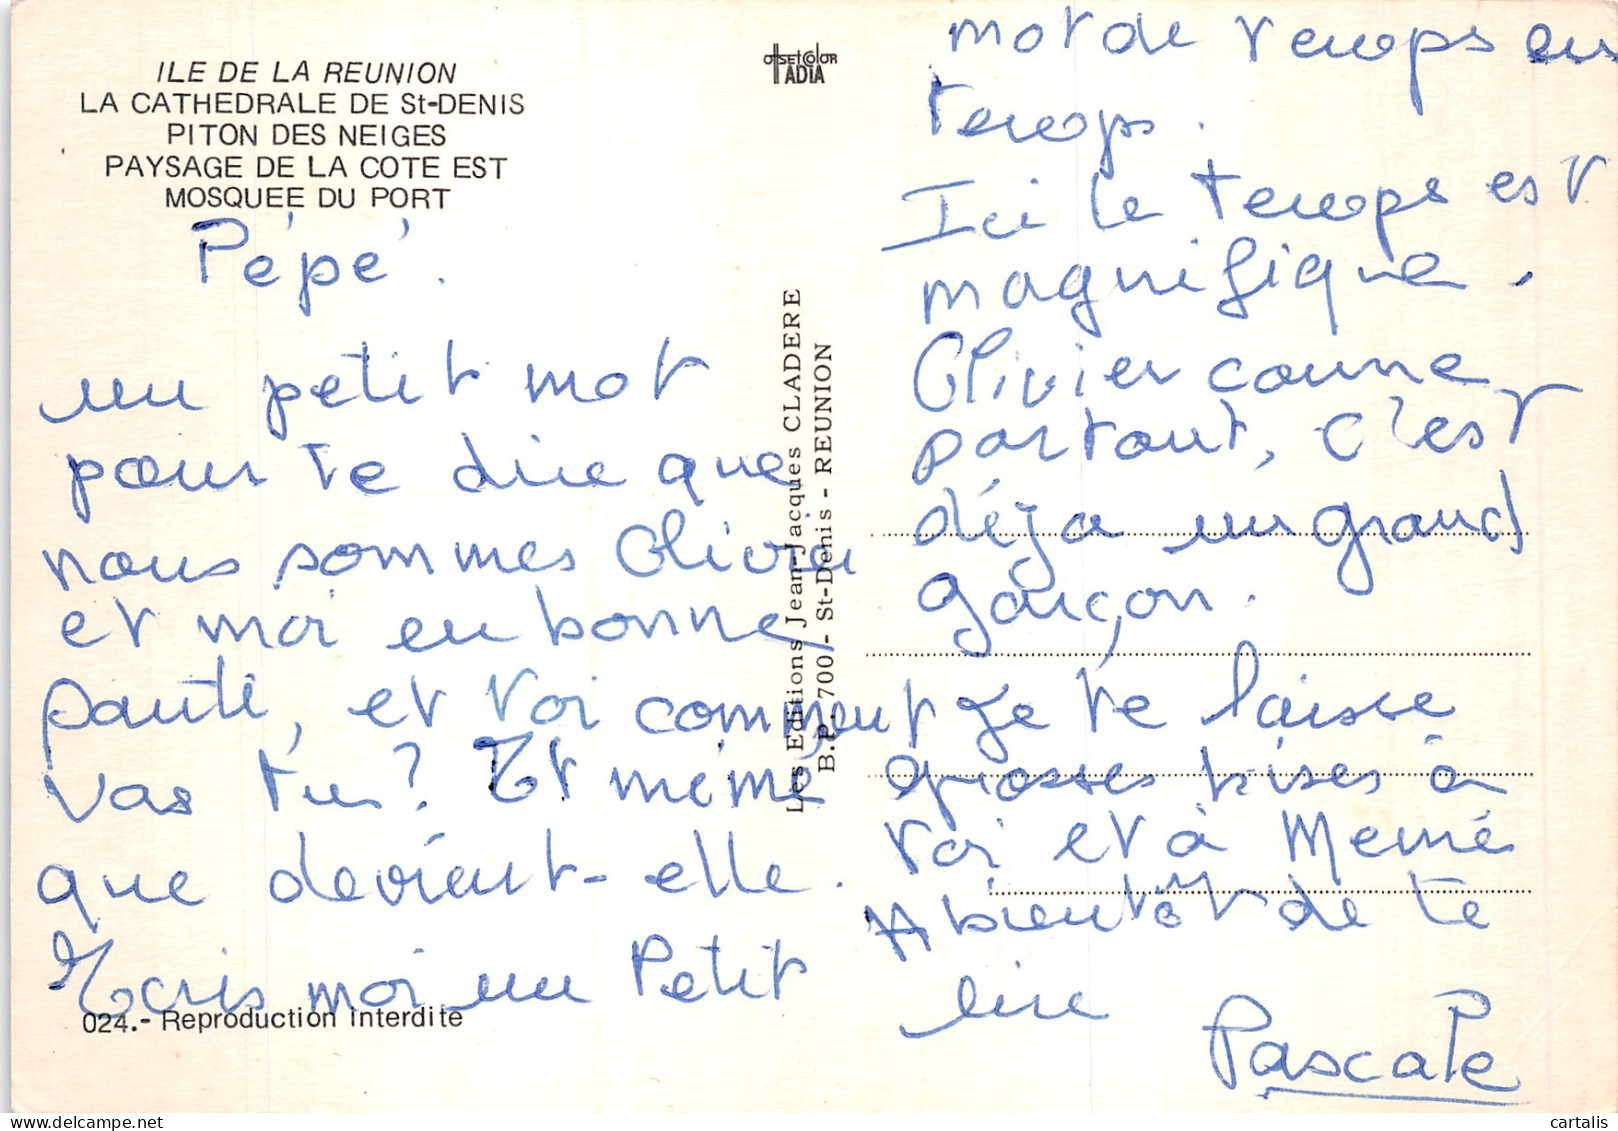 ILE DE LA REUNION
LA CATHEDRALE DE St-DENIS
PITON DES NEIGES
PAYSAGE DE LA COTE EST
MOSQUEE DU PORT
Pépé.
un petit mot
pour te dire que
nous sommes Olivier
et moi en bonne
santé, et toi comment
vas tu? Et mémé
que devient-elle.
Ecris moi un Petit
024.- Reproduction interdite
OffsetColor
ADIA
Les Editions Jean-Jacques CLADERE
B.P. 700 - St-Denis - REUNION
mot de temps en
temps.
Ici le temps est
magnifique.
Olivier coure
partout, c'est
déja un grand
garçon.
Je te laisse
grosses bises à
toi et à Memé
A bientôt de te
lire
Pascale
cartalis